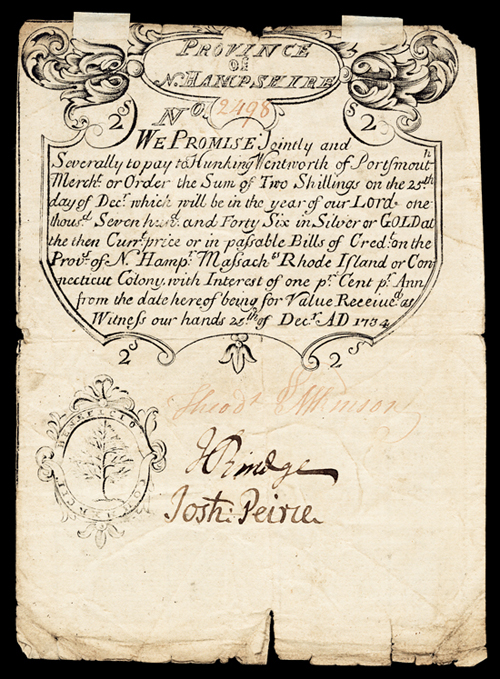 PROVINCE
OF
N. HAMPSHIRE
No. 2498
2s 2s
WE PROMISE Jointly and
Severally to pay to Hunking Wentworth of Portsmouth
Mercht. or Order the Sum of Two Shillings on the 25th
day of Decr. which will be in the year of our LORD one
thousd. Seven hund. and Forty Six in Silver or GOLD at
the then Currt. price or in passable Bills of Credt. on the
Provs. of N. Hampr. Massachts. Rhode Island or Con-
necticut Colony, with Interest of one pr. Cent pr. Ann
from the date hereof being for Value Receivd. as
Witness our hands 25th of Decr. AD 1734
2s 2s
Theodr. Atkinson
BENEFICIO COMMERCII
J Rindge
Josh: Peirce